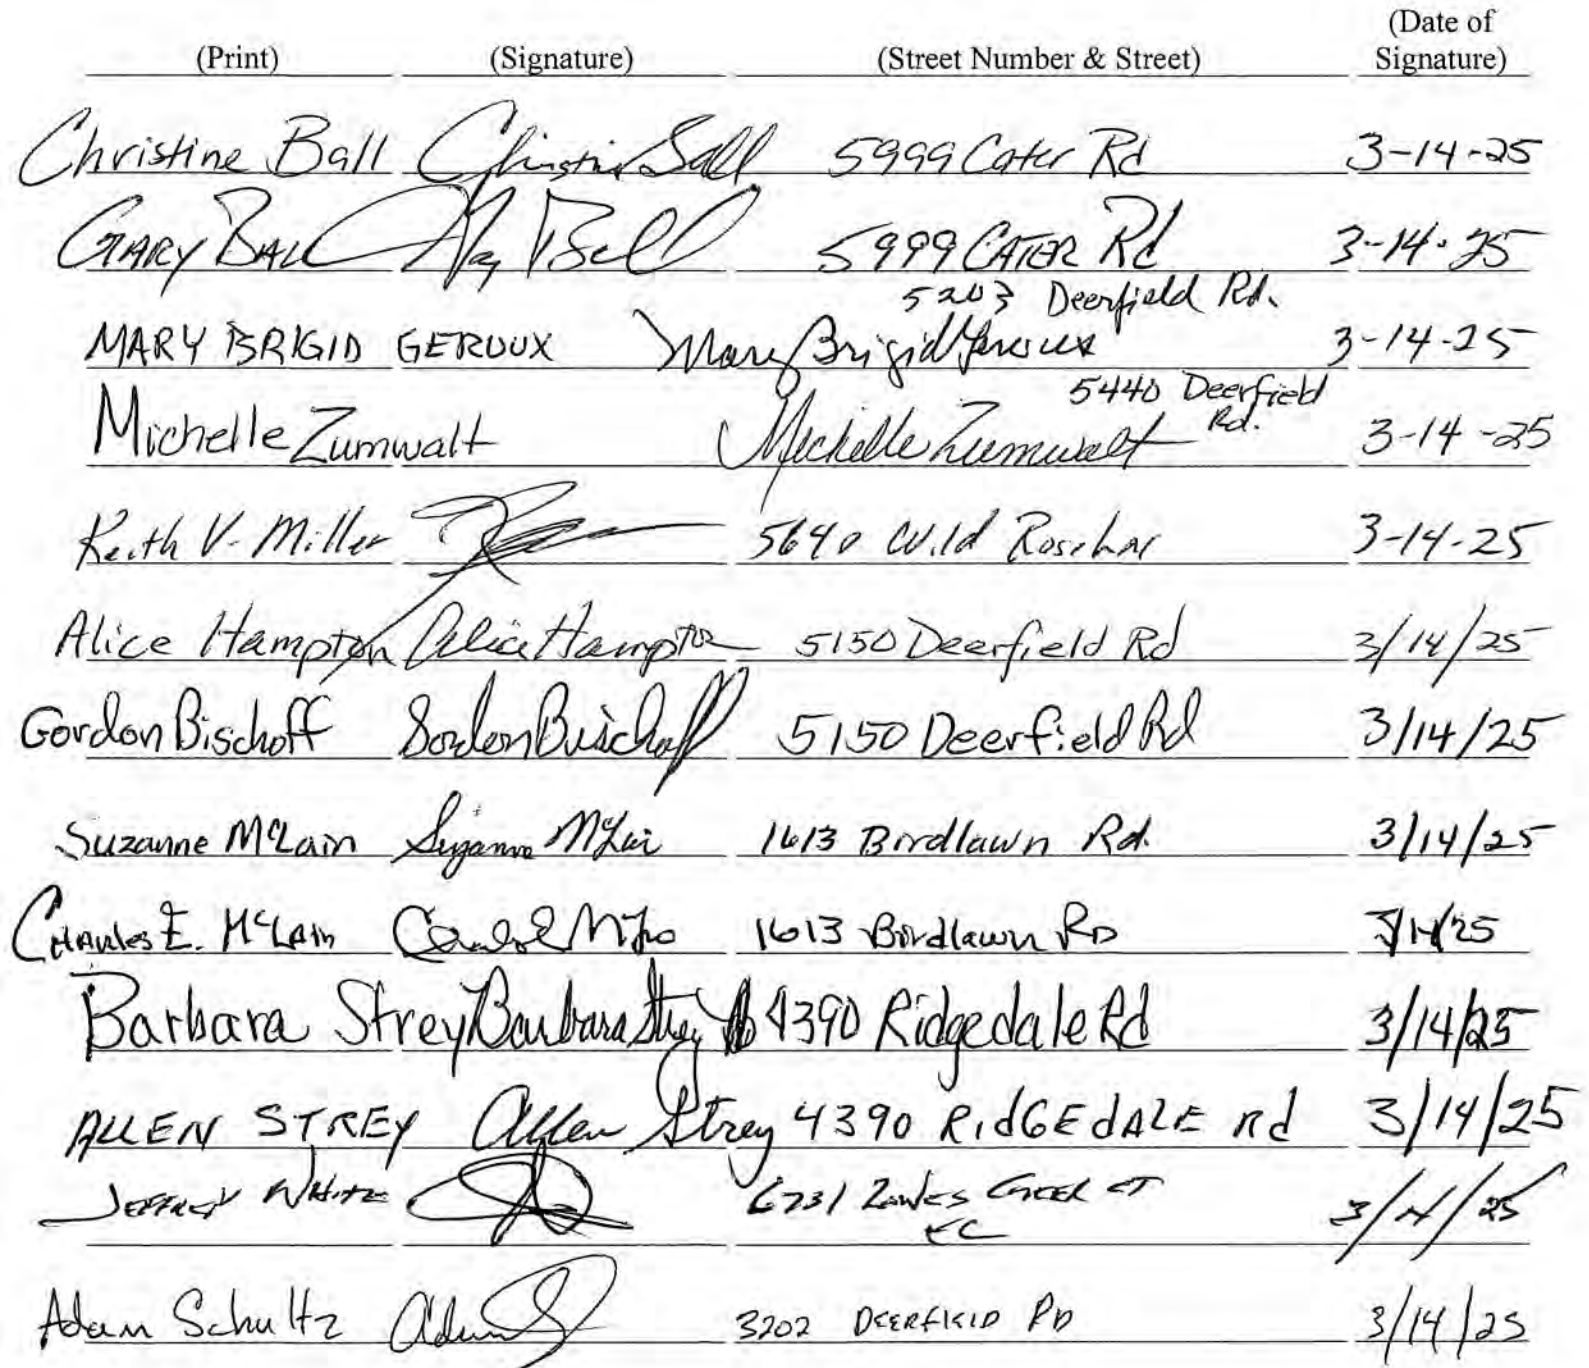 (Print) (Signature) (Street Number & Street) (Date of Signature)
Christine Ball Christine Ball 5999 Cater Rd 3-14-25
GARY BALL Gary Ball 5999 CATER Rd 3-14-25
5203 Deerfield Rd.
MARY BRIGID GEROUX Mary Brigid Geroux 3-14-25
5440 Deerfield Rd.
Michelle Zumwalt Michelle Zumwalt 3-14-25
Keith V. Miller 5640 Wild Rose 3-14-25
Alice Hampton Alice Hampton 5150 Deerfield Rd 3/14/25
Gordon Bischoff Gordon Bischoff 5150 Deerfield Rd 3/14/25
Suzanne McLain Suzanne McLain 1613 Birdlawn Rd. 3/14/25
CHARLES E. McLAin 1613 Birdlawn RD 3/14/25
Barbara Strey Barbara Strey 4390 Ridgedale Rd 3/14/25
ALLEN STREY Allen Strey 4390 RIdGEdALE Rd 3/14/25
JEFFREY WHITE 6731 CREEK CT 3/14/25
EC
Adam Schultz Adam 3202 DEERFIELD RD 3/14/25